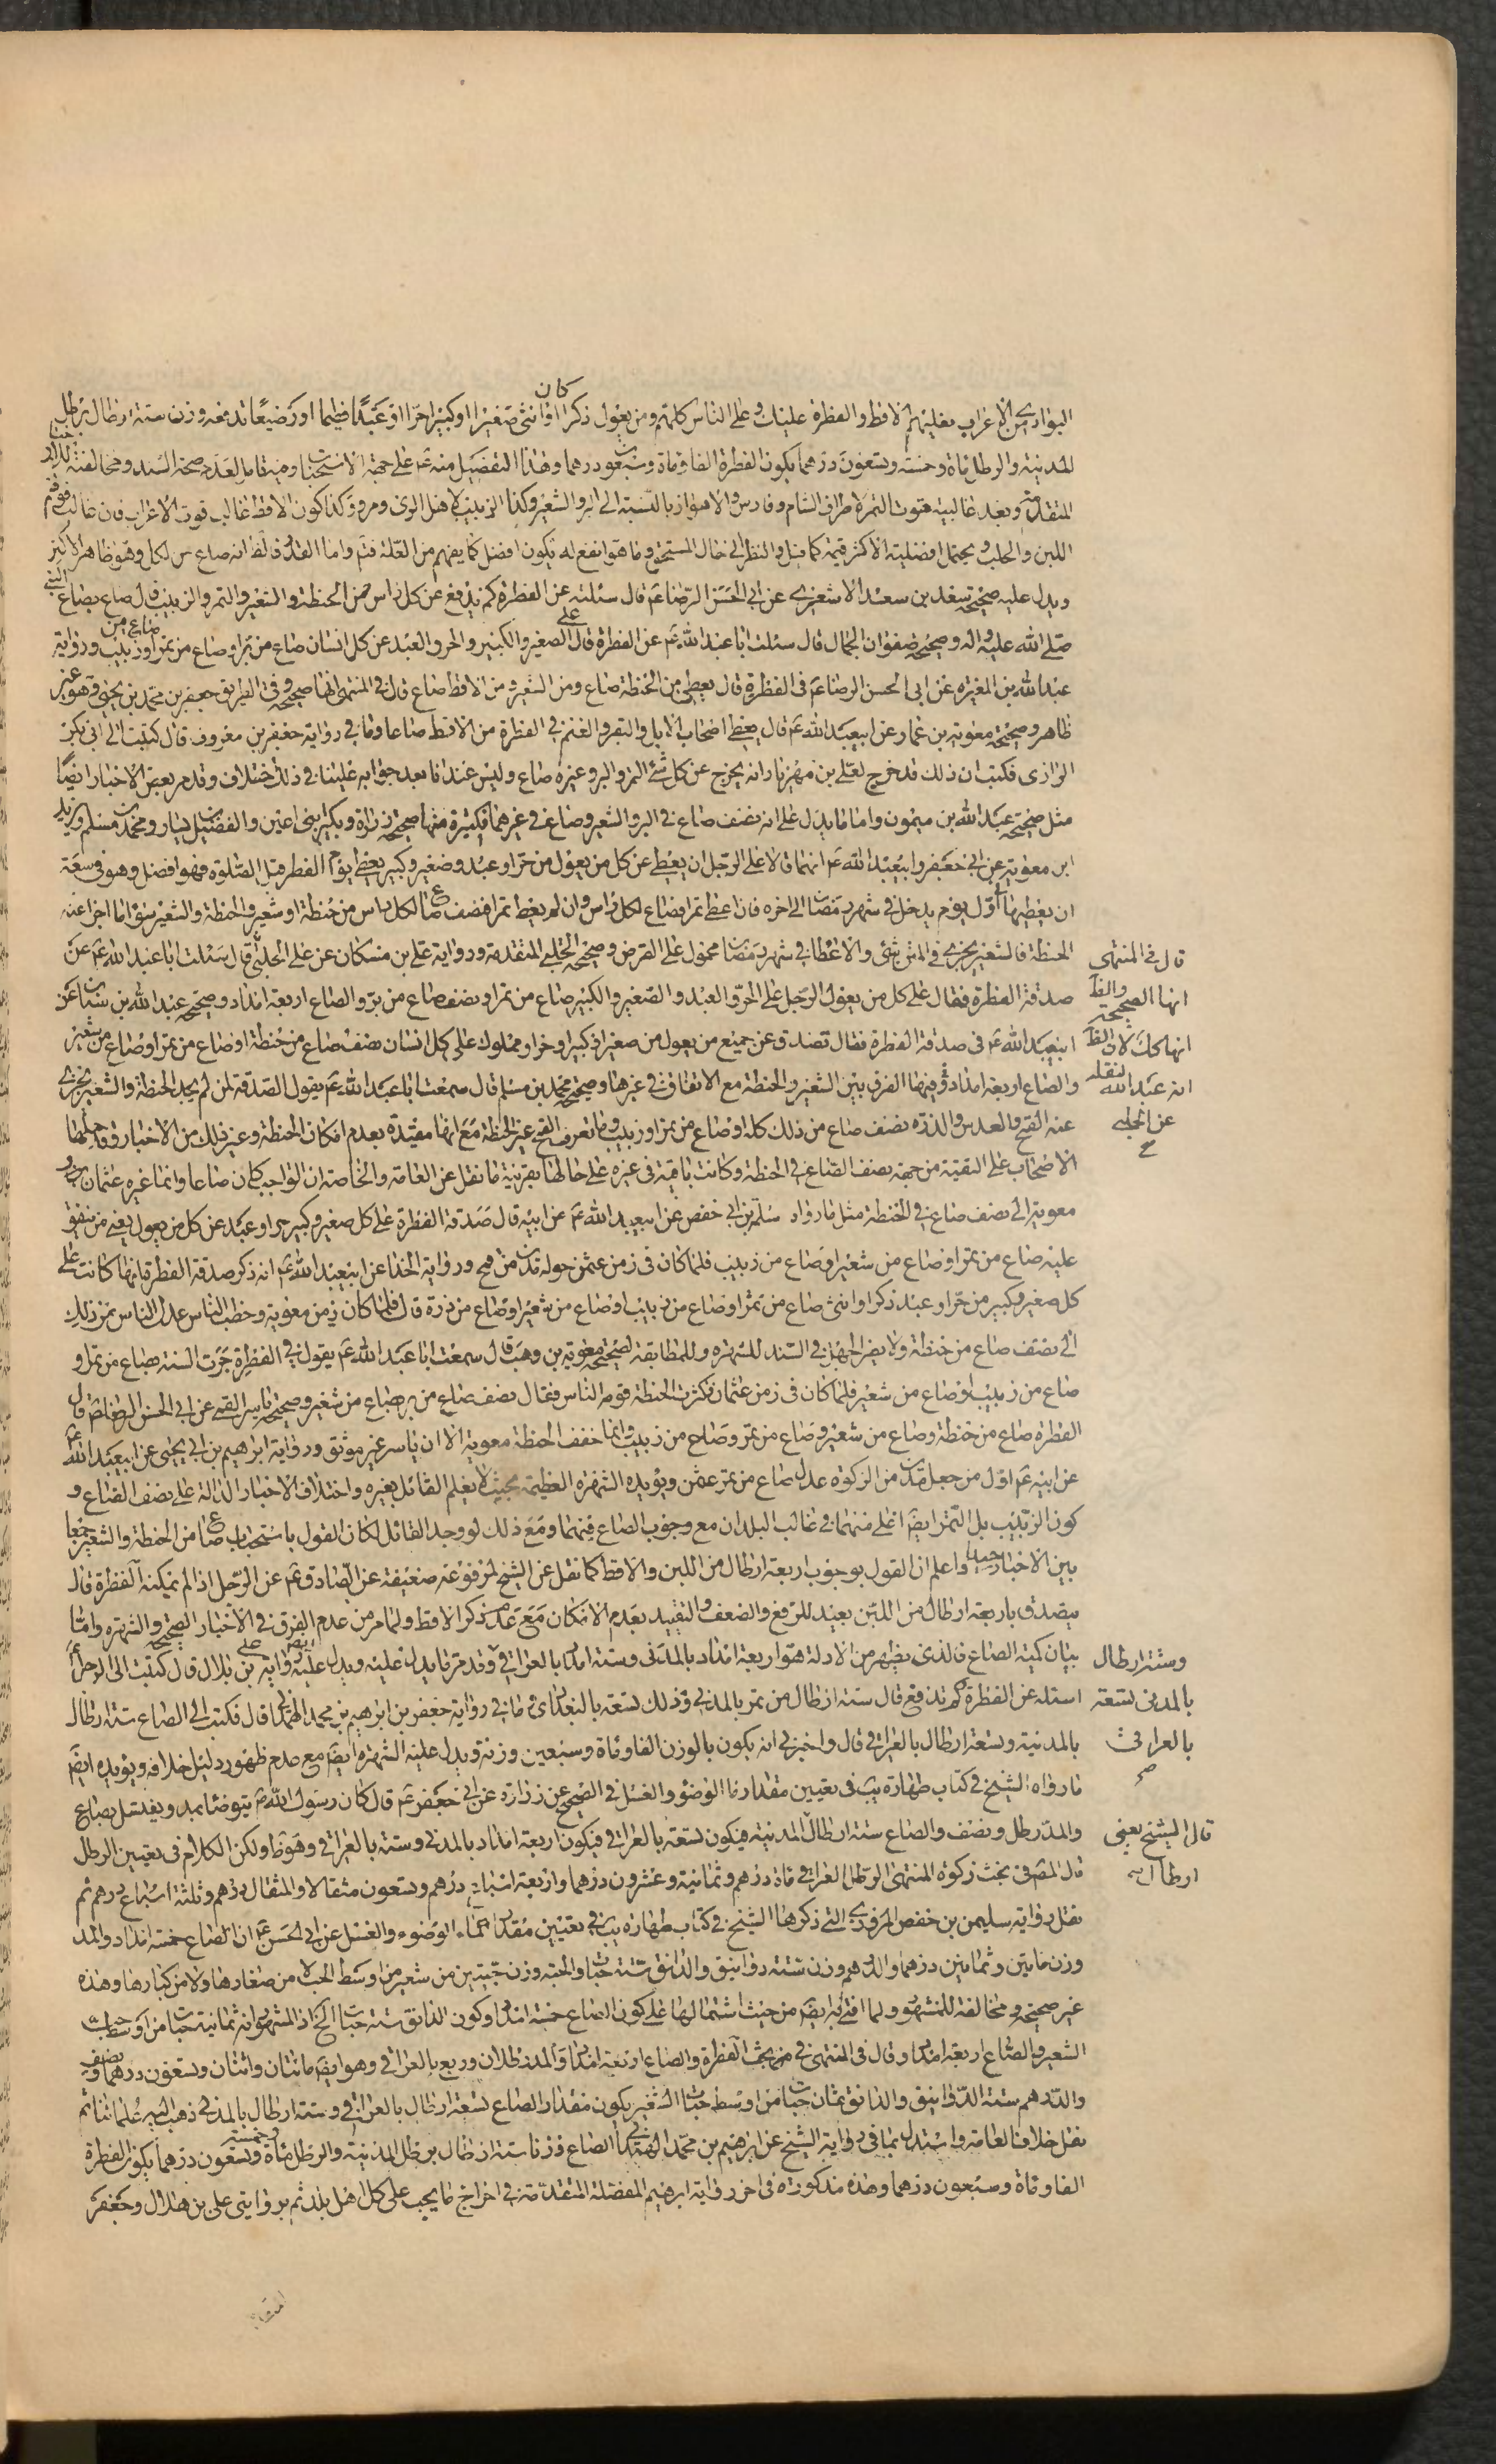 كان
البوادي من الاعراب فعليهم الاقط والفطرة عليك وعلى الناس كلهم ومن يعول ذكرا او انثى صغيرا او كبيرا حرا او عبدا فطيما او رضيعا تدفعه وزن ستة ارطال برطل
المدينة والرطل مأة وخمسة وتسعون درهما يكون الفطرة الفا ومأة وسبعون درهما وهذا التفضيل منه عم على جهة الاستحباب ومنقا مر لعدم صحة السند ومخالفته
المتقدمة وبعد غالبية قوت التمر لاطراف الشام وفارس والاهواز بالنسبة الى البر والشعير وكذا الزبيب لاهل الري ومرو وكذا كون الاقط غالب قوت الاعراب فان غالب قوتهم
اللبن والحلب ويحتمل افضلية الاكثر قيمة كما قيل والنظر الى حال المستحق وما هو انفع له فيكون افضل كما يفهم من العلة فتم واما القدر فالظ انه صاع من لكل وهو ظاهر الاكثر
ويدل عليه صحيحة سعد بن سعد الاشعري عن ابي الحسن الرضا عم قال سئلته عن الفطرة كم يدفع عن كل راس من الحنطة والشعير والتمر والزبيب قال صاع بصاع النبي
صلى الله عليه واله وصحيحة صفوان الجمال قال سئلت ابا عبد الله عم عن الفطرة قال على الصغير والكبير والحر والعبد عن كل انسان صاع من بر او صاع من تمر او صاع من زبيب ورواية
عبد الله بن المغيرة عن ابي الحسن الرضا عم في الفطرة قال يعطى من الحنطة صاع ومن الشعير ومن الاقط صاع قال في المنتهى انها صحيحة وفي الطريق جعفر بن محمد بن يحيى وهو غير
ظاهر وصحيحة معوية بن عمار عن ابيعبد الله عم قال يعطى اصحاب الابل والبقر والغنم في الفطرة من الاقط صاعا وما في رواية جعفر بن معروف قال كتبت الى ابي بكر
الرازي فكتب ان ذلك قد خرج لعلي بن مهزيار انه يخرج عن كل شئ التمر والبر وغيره صاع وليس عندنا بعد جوابه علينا في ذلك اختلاف وقد مر بعض الاخبار ايضا
مثل صحيحة عبد الله بن ميمون واما ما يدل على انه نصف صاع في البر والشعير وصاع في غيرهما فكثيرة منها صحيحة زرارة وبكير ابني اعين والفضيل بن يسار ومحمد بن مسلم وبريد
ابن معوية عن ابي جعفر وابيعبد الله عم انهما قالا على الرجل ان يعطي عن كل من يعول من حر او عبد وصغير وكبير يعطى يوم الفطر قبل الصلوة فهو افضل وهو في سعة
ان يعطيها اول يوم يدخل في شهر رمضان الى اخره فان اعطى تمرا فصاع لكل راس وان لم يعط تمرا فنصف صاع لكل راس من حنطة او شعير والحنطة والشعير سواء ما اجزا عنه
الحنطة فالشعير يجزي والاعطاء في شهر رمضان محمول على القرض وصحيحة الحلبي المتقدمة ورواية علي بن مسكان عن الحلبي قال سئلت ابا عبد الله عم عن
صدقة الفطرة فقال على كل من يعول الرجل على الحر والعبد والصغير والكبير صاع من تمر او نصف صاع من بر والصاع اربعة امداد وصحيحة عبد الله بن سنان عن
ابيعبد الله عم في صدقة الفطرة فقال تصدق عن جميع من يعول من صغير او كبير او حر او مملوك على كل انسان نصف صاع من حنطة او صاع من تمر او صاع من شعير
والصاع اربعة امداد وفيها الفرق بين الشعير والحنطة مع الاتفاق في غيرها وصحيحة محمد بن مسلم قال سمعت ابا عبد الله عم يقول الصدقة لمن لم يجد الحنطة والشعير يجزي
عنه القمح والعدس والذرة نصف صاع من ذلك كله او صاع من تمر او زبيب وما نعرف القمح غير الحنطة مع انها مقيدة بعدم امكان الحنطة وغير ذلك من الاخبار وقد حملها
الاصحاب على التقية من جهة نصف الصاع في الحنطة وكانت باقية في غيره على حالها بقرينة ما نقل عن العامة والخاصة ان الواجب كان صاعا وانما غيره عثمان و
معوية الى نصف صاع في الحنطة مثل ما رواه سلمة بن ابي حفص عن ابيعبد الله عم عن ابيه قال صدقة الفطرة على كل صغير وكبير حر او عبد عن كل من يعول يعني من ينفق
عليه صاع من تمر او صاع من شعير او صاع من زبيب فلما كان في زمن عثمن حوله مدين من قمح ورواية الحذاء عن ابيعبد الله عم انه ذكر صدقة الفطر قال انها كانت على
كل صغير وكبير من حر او عبد ذكر او انثى صاع من تمر او صاع من زبيب او صاع من شعير او صاع من ذرة قال فلما كان زمن معوية وخطب الناس عدل الناس عن ذلك
الى نصف صاع من حنطة ولا يضر الجهل في السند للشهرة وللمطابقة لصحيحة معوية بن وهب قال سمعت ابا عبد الله عم يقول في الفطرة جرت السنة بصاع من تمر او
صاع من زبيب او صاع من شعير فلما كان في زمن عثمان فكثرت الحنطة قومه الناس فقال نصف صاع من بر بصاع من شعير وصحيحة ياسر القمي عن ابي الحسن الرضا عم قال
الفطرة صاع من حنطة وصاع من شعير وصاع من تمر وصاع من زبيب وانما خفف الحنطة معوية الا ان ياسر غير موثق ورواية ابراهيم بن ابي يحيى عن ابيعبد الله
عن ابيه عم اول من جعل مدين من الزكوة عدل صاع من تمر عثمن ويؤيده الشهرة العظيمة بحيث لا يعلم القائل بغيره واختلاف الاخبار الدالة على نصف الصاع و
كون الزبيب بل التمر ايضا اغلى منهما في غالب البلدان مع وجوب الصاع فيهما ومع ذلك لو وجد القائل لكان القول باستحباب صاع من الحنطة والشعير جمعا
بين الاخبار جيدا واعلم ان القول بوجوب اربعة ارطال من اللبن والاقط كما نقل عن الشيخ لمرفوعة ضعيفة عن الصادق عم عن الرجل اذا لم يمكنه الفطرة قال
يتصدق باربعة ارطال من اللبن بعيد للرفع والضعف والتقييد بعدم الامكان مع عدم ذكر الاقط ولما مر من عدم الفرق في الاخبار الصحيحة والشهرة واما
بيان كمية الصاع فالذي يظهر من الادلة هو اربعة امداد بالمدني وستة امداد بالعراقي وقد مر ما يدل عليه ويدل عليه ايضا رواية علي بن بلال قال كتبت الى الرجل عم
اسئله عن الفطرة وكم تدفع قال ستة ارطال من تمر بالمدني وذلك تسعة بالبغدادي وما في رواية جعفر بن ابراهيم بن محمد الهمداني قال فكتب الي الصاع ستة ارطال
بالمدنية وتسعة ارطال بالعراقي قال واخبرني انه يكون بالوزن الفا ومأة وسبعين وزنة ويدل عليه الشهرة ايضا مع عدم ظهور دليل خلافه ويؤيده ايضا
ما رواه الشيخ في كتاب طهارة يب في تعيين مقدار ماء الوضوء والغسل في الصحيح عن زرارة عن ابي جعفر عم قال كان رسول الله ص يتوضأ بمد ويغتسل بصاع
والمد رطل ونصف والصاع ستة ارطال المدنية فيكون تسعة بالعراقي فيكون اربعة امداد بالمدني وستة بالعراقي وهو ظ ولكن الكلام في تعيين الرطل
قال المصن في بحث زكوة المنتهى الرطل العراقي مأة درهم وثمانية وعشرون درهما واربعة اسباع درهم وتسعون مثقالا والمثقال درهم وثلثة اسباع درهم ثم
نقل رواية سليمن بن حفص المروزي التي ذكرها الشيخ في كتاب طهارة يب في تعيين مقدار ماء الوضوء والغسل عن ابي الحسن عم ان الصاع خمسة امداد والمد
وزن مأتين وثمانين درهما والدرهم وزن ستة دوانيق والدانق ستة حبات والحبة وزن حبتين من شعير من اوسط الحب لا من صغارها ولا من كبارها وهذه
غير صحيحة ومخالفة للمشهور ولما افتى به ايضا من حيث اشتمالها على كون الصاع خمسة امداد وكون الدانق ستة حبات الخ اذ المشهور انه ثمانية حبات من اوسط حبات
الشعير والصاع اربعة امداد وقال في المنتهى في بحث الفطرة والصاع اربعة امداد والمد رطلان وربع بالعراقي وهو ايضا مائتان واثنان وتسعون درهما ونصف
والدرهم ستة الدوانيق والدانق ثمان حبات من اوسط حبات الشعير يكون مقدار الصاع تسعة ارطال بالعراقي وستة ارطال بالمدني ذهب اليه علمائنا ثم
نقل خلاف العامة واستدل بما في رواية الشيخ عن ابراهيم بن محمد الهمداني الصاع وزنا ستة ارطال برطل المدينة والرطل مأة وخمسة وتسعون درهما يكون الفطرة
الفا ومأة وسبعون درهما وهذه مذكورة في اخر رواية ابراهيم المفصلة المتقدمة في اخراج ما يجب على كل اهل بلد ثم بروايتي علي بن هلال وجعفر
قال في المنتهى
انها الصحيحة والظ
انها كك لان الظ
انه عبد الله لنقله
عن الحلبي
وستة ارطال
بالمدني تسعة
بالعراقي
قال الشيخ يعني
ارطال